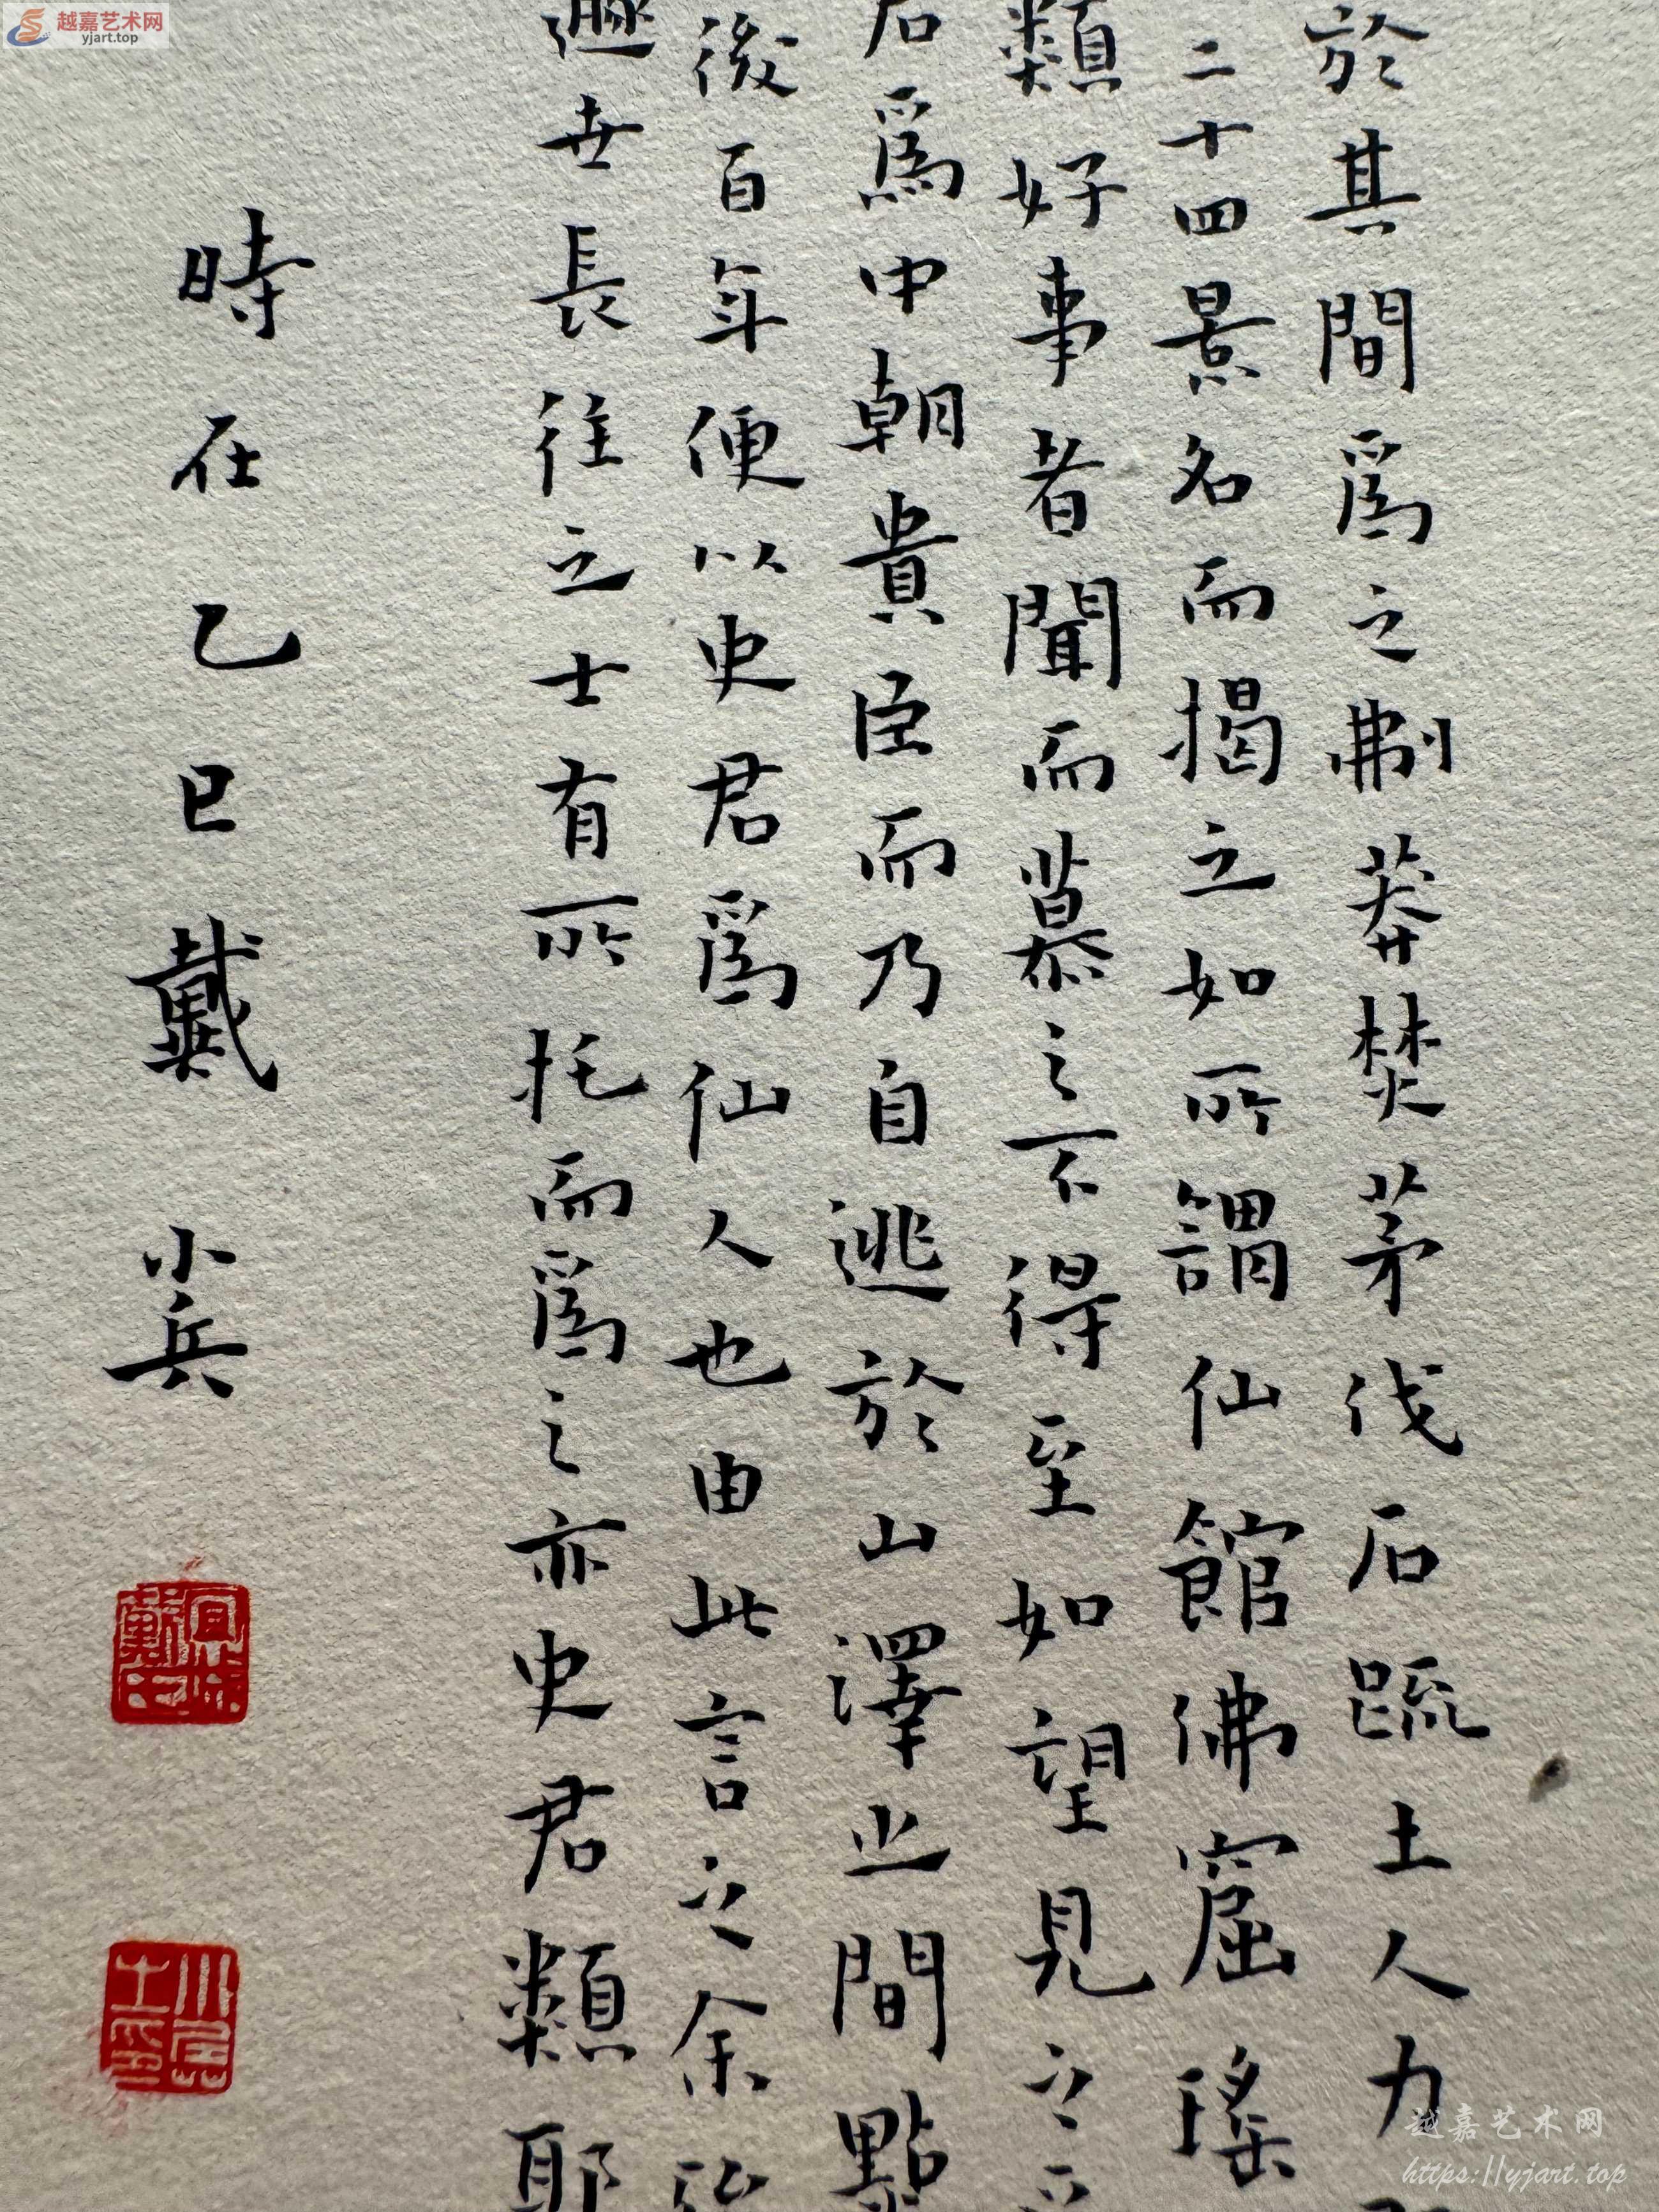 越嘉艺术网
yjart.top
於其間爲之刜莽焚茅伐石疏土人力
二十四景名而揭之如所謂仙館佛窟瑤
類好事者聞而慕之不得至如望見之
君爲中朝貴臣而乃自逃於山澤之間點
後百年便以史君爲仙人也由此言之余
遯世長往之士有所托而爲之亦史君類耶
時在乙巳戴小兵
越嘉艺术网
https://yjart.top